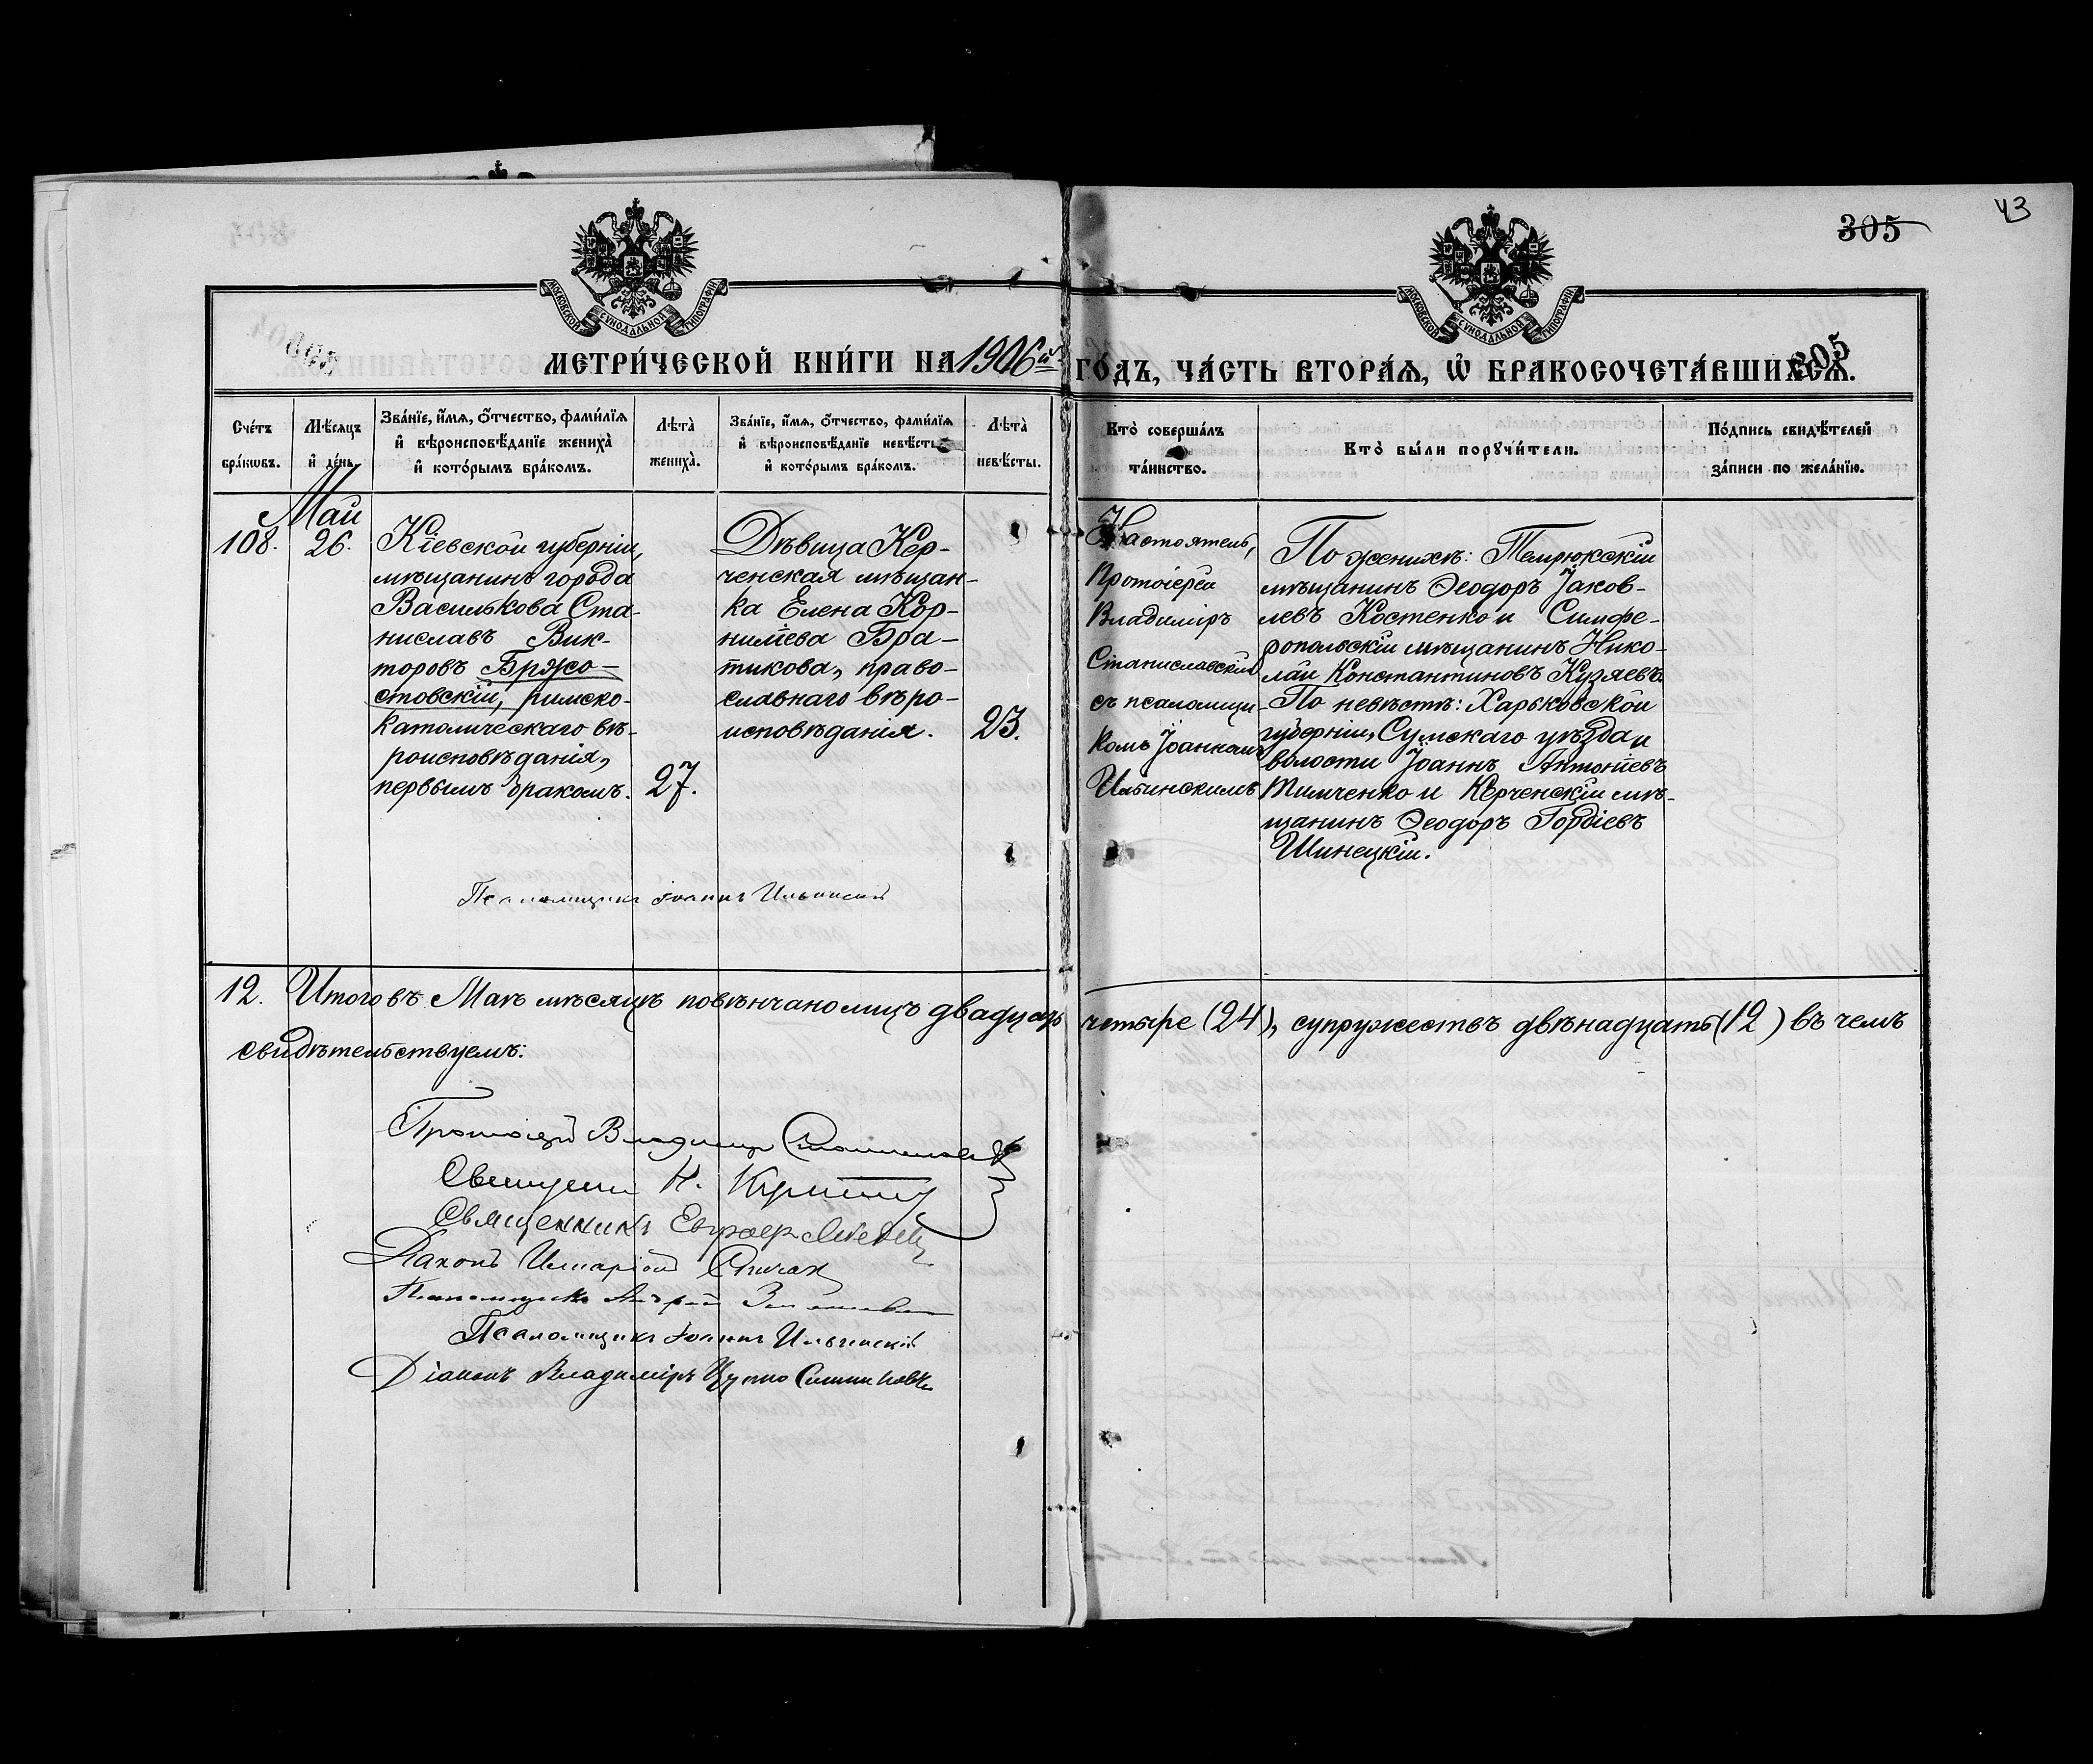 43
305
МОСКОВСКОЙ СѴНОДАЛЬНОЙ ТИПОГРАФІИ
МОСКОВСКОЙ СѴНОДАЛЬНОЙ ТИПОГРАФІИ
МЕТРИ́ЧЕСКОЙ КНИ́ГИ НА 1906й ГО́ДЪ, ЧА́СТЬ ВТОРА́Я, Ѡ҆ БРАКОСОЧЕТА́ВШИХСЯ.
305
Сче́тъ бра́кωвъ.
Мѣ́сяцъ и҆ де́нь.
Зва́нїе, и҆́мя, ѻ҆́тчество, фами́лїя и҆ вѣроисповѣ́данїе жениха̀ и҆ кото́рымъ бра́комъ.
Лѣта̀ жениха̀.
Зва́нїе, и҆́мя, ѻ҆́тчество, фами́лїя и҆ вѣроисповѣ́данїе невѣ́сты и҆ кото́рымъ бра́комъ.
Лѣта̀ невѣ́сты.
Кто̀ соверша́лъ та́инство.
Кто̀ бы́ли порꙋчи́тели.
По́дпись свидѣ́телей за́писи по жела́нїю.
Май
108.
26.
Кіевской губерніи,
мѣщанинъ города
Василькова Ста-
ниславъ Вик-
торовъ Бржо-
стовскій, римско-
католическаго вѣ-
роисповѣданія,
первымъ бракомъ.
27.
Дѣвица Кер-
ченская мѣщан-
ка Елена Кор-
нилiева Бра-
тикова, право-
славнаго вѣро-
исповѣданія.
23.
Настоятель,
Протоіерей
Владиміръ
Станиславскій
съ псаломщи-
комъ Іоанномъ
Ильинскимъ
По женихѣ: Темрюкскій
мѣщанинъ Ѳеодоръ Іаков-
левъ Костенко и Симфе-
ропольскій мѣщанинъ Нико-
лай Константиновъ Кузяевъ.
По невѣстѣ: Харьковской
губерніи, Сумскаго уѣзда и
волости Іоаннъ Антоніевъ
Тимченко и Керченскій мѣ-
щанинъ Ѳеодоръ Гордіевъ
Шинецкій.
Псаломщикъ Іоаннъ Ильинскій
12. Итого въ Маѣ мѣсяцѣ повѣнчано лицъ двадцать четыре (24), супружествъ двѣнадцать (12) въ чемъ
свидѣтельствуемъ:
Протоіерей Владиміръ Станиславскій
Священникъ Н.
Священникъ
Діаконъ Иларіонъ Спичак
Псаломщикъ Андрей
Псаломщикъ Іоаннъ Ильинскій
Діаконъ Владиміръ